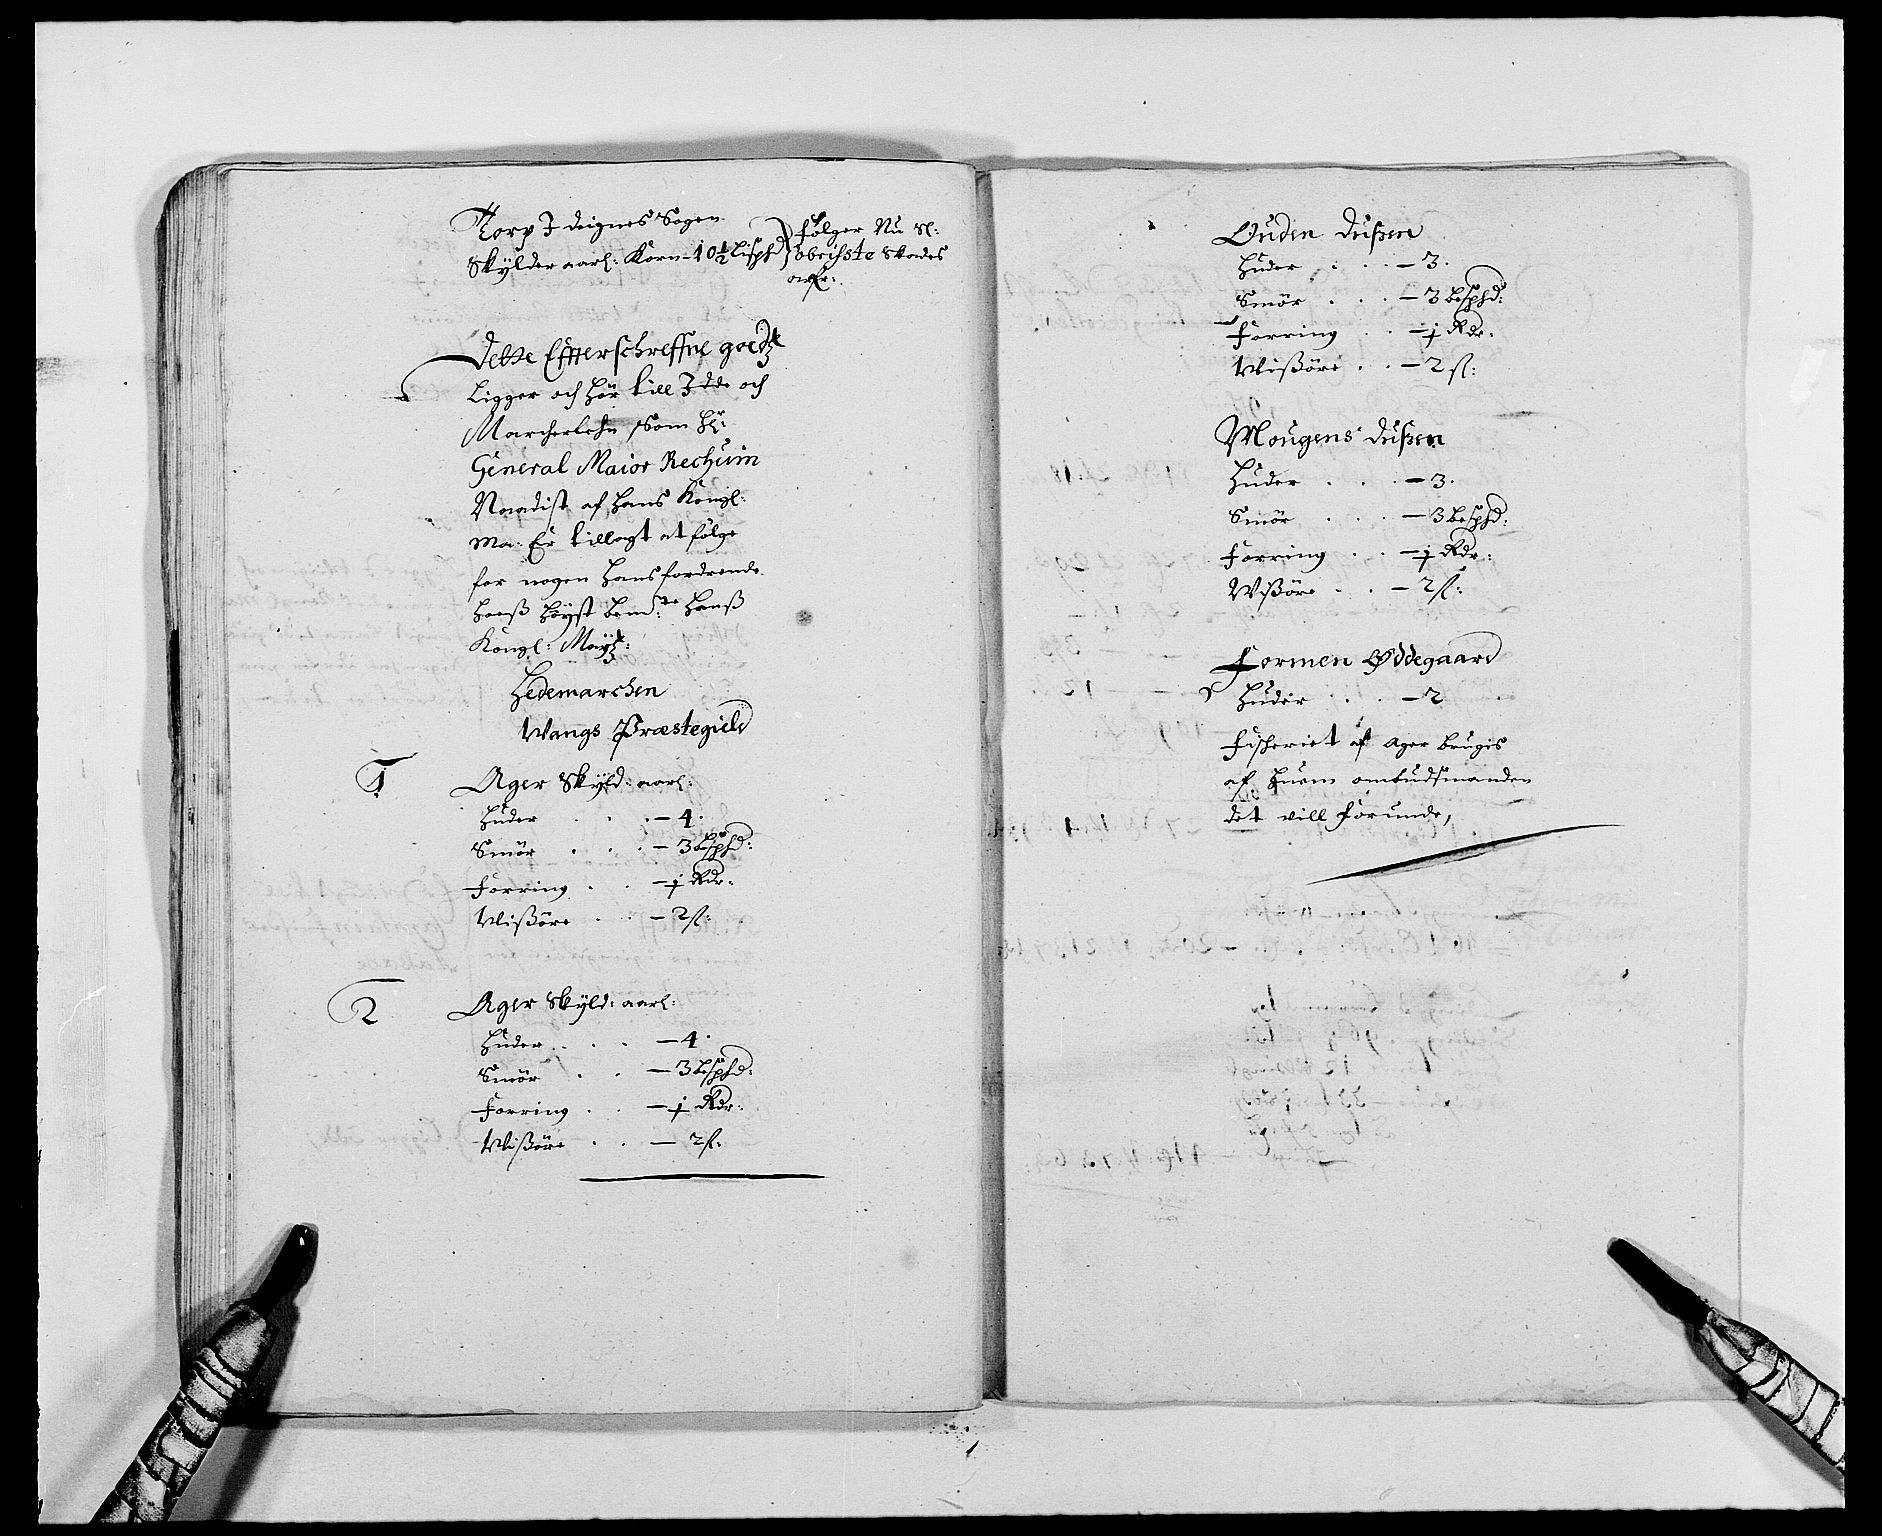 Torp I deignes Sogen
Skÿlder aarl: Korn - 10½ Lispd
følger Nu Sl:
oberiste Skades
arf:
Dette Effterschreffne goedtz
Ligger och hör till Idde och
Marcherlehn, Som Hr:
General Maior Rechuin
Naadist af hans Kongl:
Ma: Er tillagt at følge
for nogen hans fordrende
hoeß høyst bem:te Hanß
Kongl: Maÿtz:
Hedemarchen
Wangs Præstegield
1 Ager Skÿld: aarl:
Huder . . . - 4.
Smör . . . - 3 bispd:
Forring . . - j Rdr:
Wißöre . . - 2 sl:
2 Ager Skÿld: aarl:
Huder . . . - 4.
Smör . . - 3 bispd:
Forring . . - j Rdr:
Wißöre . . - 2 sl:
Ouden Dußen
Huder . . . - 3.
Smör . . . - 3 bispd:
Forring . . - j Rdr:
Wißöre . . - 2 sl:
Mougens Dußen
Huder . . . - 3.
Smör . . . - 3 bispd:
Forring . . - j Rdr:
Wißöre . . - 2 sl:
Formen Øddegaard
Huder . . . - 2
Fischeriet af Ager brugis
af huem ombudsmanden
det vill forunde,